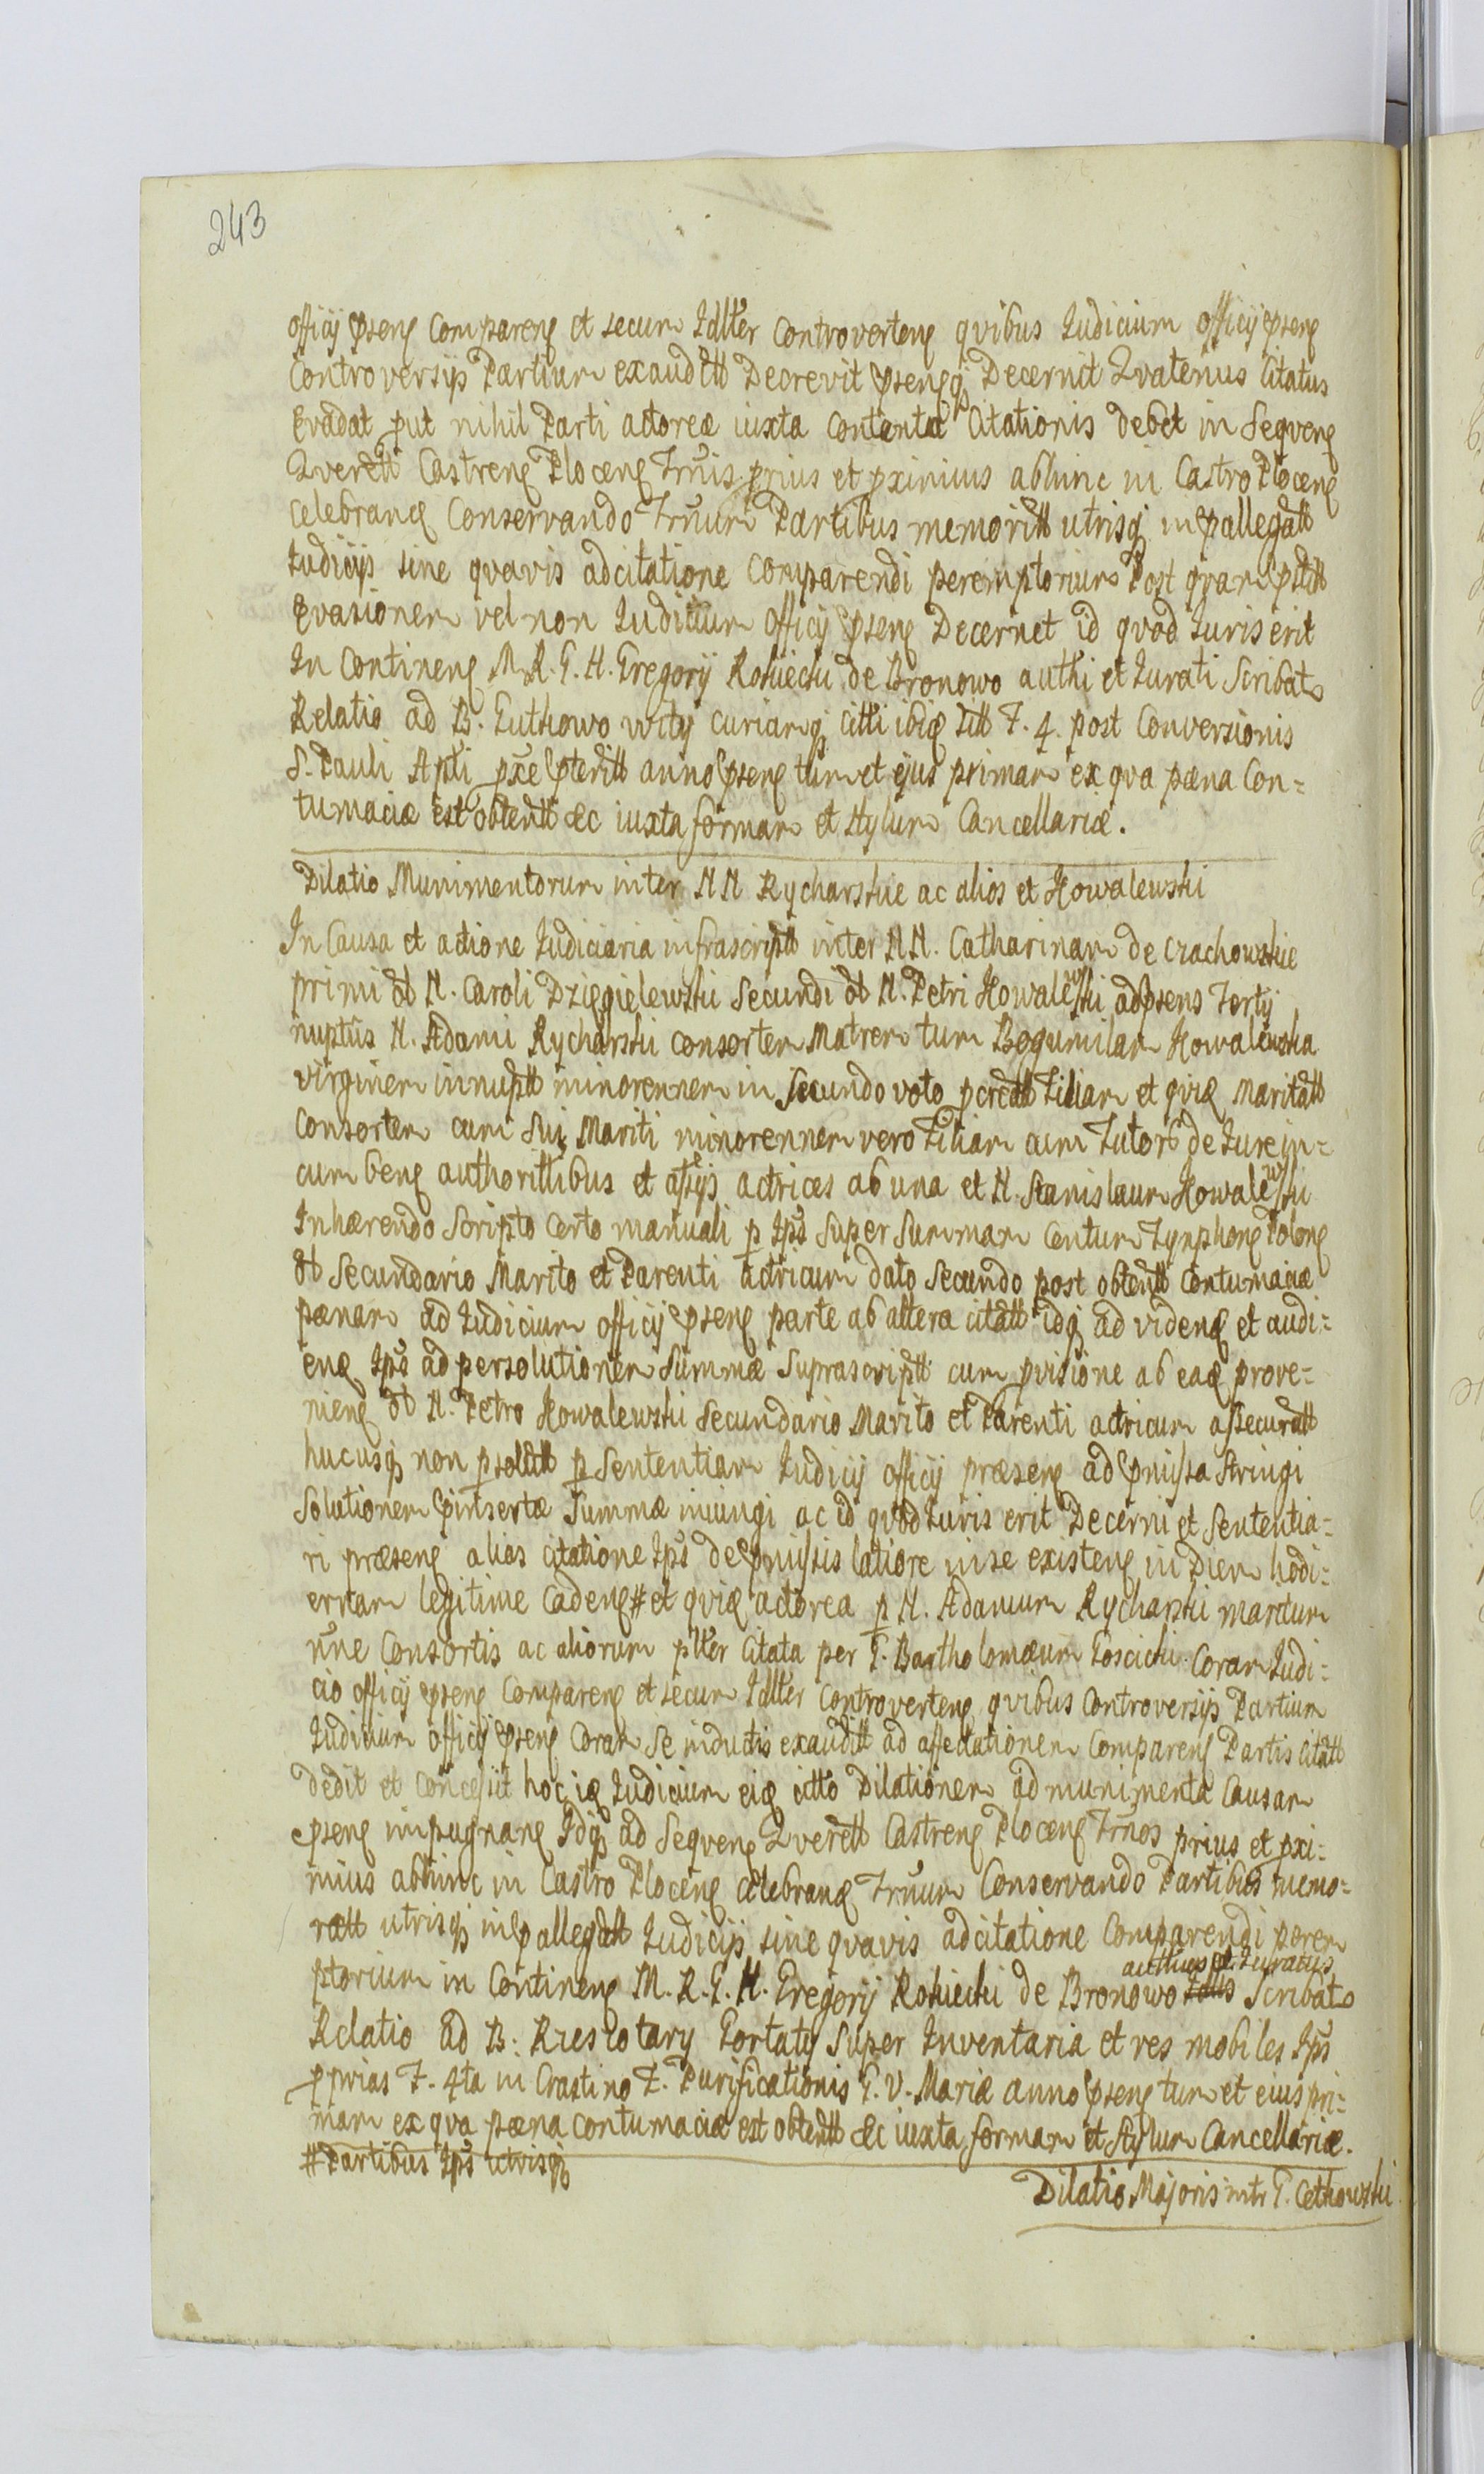 243
officij psens Comparens et secum Idlter Controvertens quibus Iudicium officij psens
Controversijs Partium exauditt Decrevit psensq Decernit Quatenus Citatus
Evadat put nihil Parti actoreæ iuxta Contenta Citationis debet in Sequens
Querett Castrens Plocens Trnis prius et pximius abhinc in Castro Plocens
Celebrand Conservando Trnum Partibus memoritt utrisq in pallegatt
Iudicijs sine quavis adcitatione Comparendi peremptorium Post quam pstitt
Evasionem vel non Iudicium officij psens Decernet id quod Iuris erit
In Continens M. R. G. N. Gregorij Rokicki de Bronowo authi et Iurati Scribat
Relatio ad B. Guthowo vvity Curiamq citti ibid sitt F. 4. post Conversionis
S. Pauli Apti pxe pteritt anno psens tum et ejus primam ex qua pæna Con=
tumaciæ est obtentt &c iuxta formam et stylum Cancellariæ.
Dilatio Munimentorum inter NN Rycharskie ac alios et Kowalewski
In Causa et actione Iudiciaria infrascriptt inter NN. Catharinam de Czachowskie
primi ot N. Caroli Dziegielewski Secundi ot N. Petri Kowalewski adpsens Tertij
nuptus N. Adami Rycharski consortem Matrem tum Bogumilam Kowalewska
virginem innuptt minorennem in Secundo voto pcreatt Filiam et quid Maritatt
Consortem cum Sui Mariti minorennem vero Filiam cum Tutorb de Iure in=
cumbens authorittibus et assijs actrices ab una et N. Stanislaum Kowalewski
Inhærendo Scripto Certo manuali p Ips Super Summam Centum Tynphons Polons
ot Secundario Marito et Parenti actricum dato Secundo post obtentt Contumaciæ
pænam ad Iudicium officij psens parte ab altera citatt idq ad videnð et audi=
enð Ips ad persolutionem Summæ Suprascriptt cum pvisione ab eað prove=
niens ot N. Petro Kowalewski Secundario Marito et Parenti actricum assecuratt
hucusq non psolutt p Sententiam Iudicij officij præsens ad pmissa Stringi
Solutionem pinsertæ Summæ iniungi ac id quod Iuris erit Decerni et Sententia=
ri præsens alias citatione Ips de pmissis latiore in se existens in Diem hodi=
ernam legitime Cadens # et quið actorea p N. Adamum Rycharski maritum
nne Consortis ac aliorum plter Citata per G. Bartholomæum Goscicki Coram Iudi=
cio officij psens Comparens et secum Idlter Controvertens quibus Controversijs Partium
Iudicium officij psens Coram Se inductis exauditt ad affectationem Comparens Partis Citatt
dedit et Concessit hoc ið Iudicium eið citto Dilationem ad munimenta Causam
psens impugnans Idq ad Sequens Querett Castrens Plocens Trnos prius et pxi=
mius abhinc in Castro Plocens celebranð Trnum Conservando Partibus memo=
ratt utrisq in pallegatt Iudicijs sine quavis adcitatione Comparendi perem
authus et Iuratus
ptorium in Continens M. R. G. N. Gregorij Rokicki de Bronowo Scribat
Relatio ad B: Rzeszotary Gortaty Super Inventaria et res mobiles Ips
pprias F. 4ta in Crastino F. Purificationis G. V. Mariæ anno psens tum et eius pri=
mam ex qua pæna contumaciæ est obtentt &c iuxta formam et Stylum Cancellariæ.
# Partibus Ips utrisq
Dilatio Majoris intr G. Cethowski